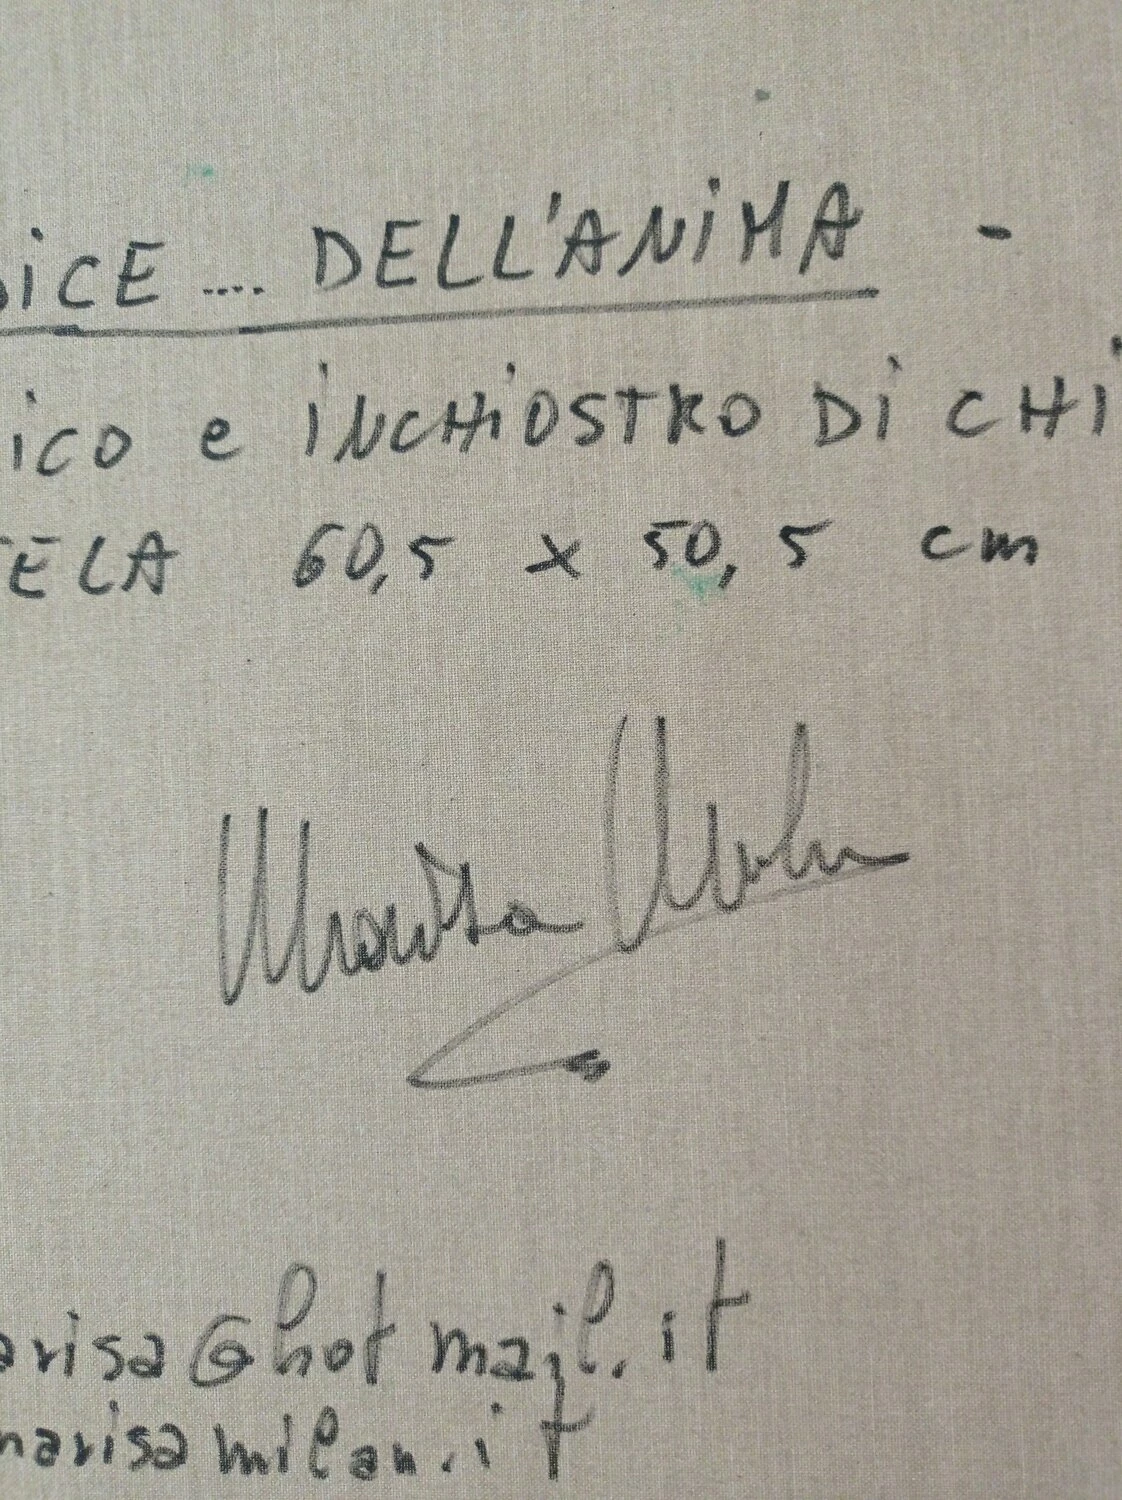 DICE .... DELL'ANIMA -
ICO e INCHIOSTRO DI CHI
TELA 60,5 x 50,5 cm
Marisa Milan
arisa@hotmail.it
marisamilan.it